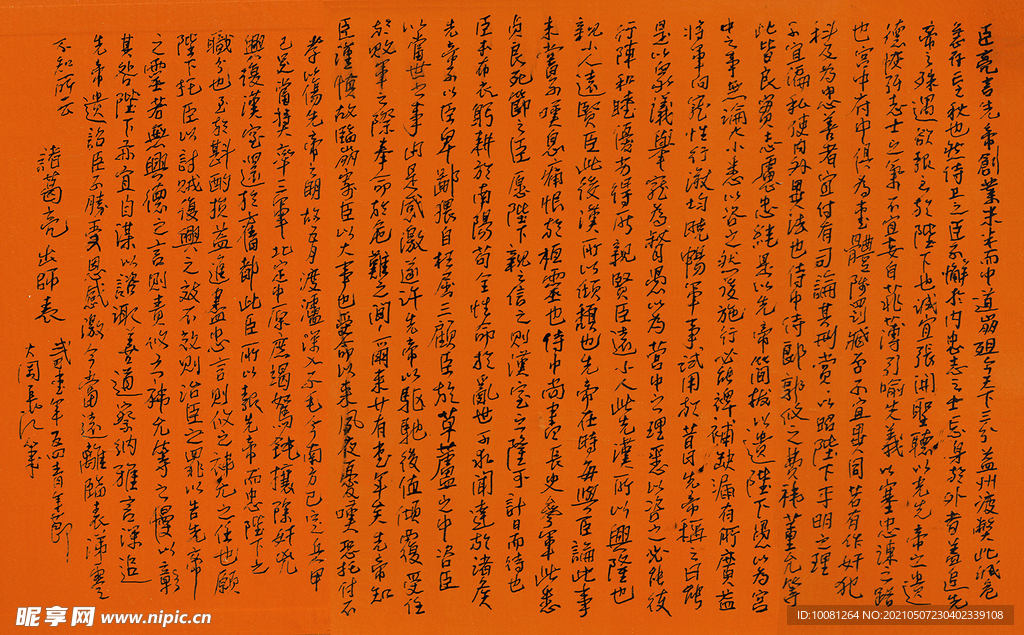 臣亮言先帝創業未半而中道崩殂今天下三分益州疲弊此誠危
急存亡之秋也然待卫之臣不懈於内忠志之士忘身於外者蓋追先
帝之殊遇欲報之於陛下也誠宜張開聖聽以光先帝之遺
德恢弘志士之氣不宜妄自菲薄引喻失義以塞忠諫之路
也宮中府中俱為壹體陟罰臧否不宜異同若有作奸犯
科及為忠善者宜付有司論其刑賞以昭陛下平明之理
不宜偏私使内外異法也侍中侍郎郭攸之費祎董允等
此皆良實志慮忠純是以先帝簡拔以遺陛下愚以為宮
中之事無論大小悉以咨之然後施行必能裨補缺漏有所廣益
將軍向寵性行淑均曉暢軍事試用於昔日先帝稱之曰能
是以眾議舉寵為督愚以為營中之理悉以咨之必能使
行陣和睦優劣得所親賢臣遠小人此先漢所以興隆也
親小人遠賢臣此後漢所以傾頹也先帝在時每與臣論此事
未嘗不嘆息痛恨於桓靈也侍中尚書長史參軍此悉
貞良死節之臣愿陛下親之信之則漢室之隆可計日而待也
臣本布衣躬耕於南陽苟全性命於亂世不求聞達於諸矦
先帝不以臣卑鄙猥自枉屈三顧臣於草蘆之中咨臣
以當世之事由是感激遂许先帝以驅馳後值傾覆受任
於敗軍之際奉命於危難之间爾来廿有壹年矣先帝知
臣謹慎故臨崩寄臣以大事也受命以来夙夜憂嘆恐托付不
孝以傷先帝之明故五月渡瀘深入不毛今南方已定兵甲
已足當獎率三軍北定中原庶竭駑鈍攘除奸兇
興復漢室還於舊都此臣所以報先帝而忠陛下之
職分也至於斟酌損益進盡忠言則攸之祎允之任也願
陛下托臣以討賊復興之效不效則治臣之罪以告先帝
之靈若無興德之言則責攸之祎允等之慢以彰
其咎陛下亦宜自谋以諮諏善道察納雅言深追
先帝遺詔臣不勝受恩感激今當遠離臨表涕零
不知所云
諸葛亮出師表
昵享网 www.nipic.cn
ID:10081264 NO:20210507230402339108